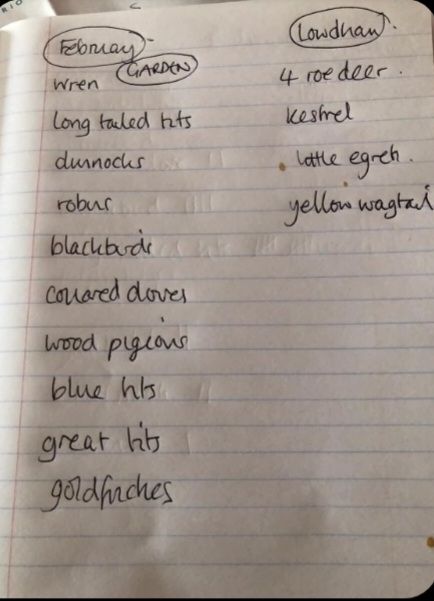 February
GARDEN
wren
long tailed tits
dunnocks
robins
blackbirds
collared doves
wood pigeons
blue tits
great tits
goldfinches
Lowdham
4 roe deer.
kestrel
little egret.
yellow wagtail